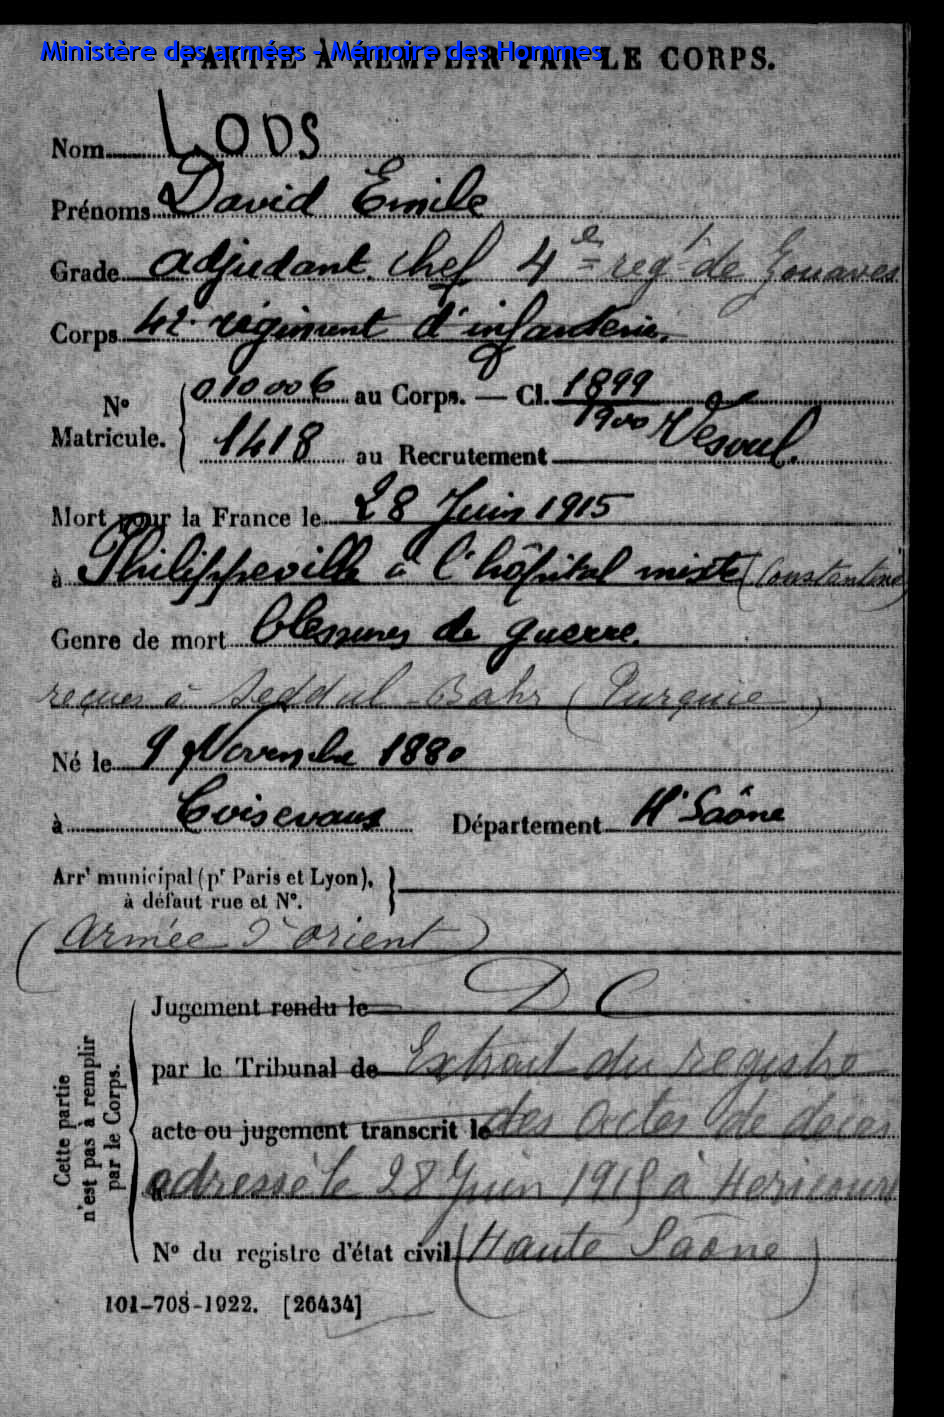 Ministère des armées - Mémoire des Hommes
PARTIE À REMPLIR PAR LE CORPS.
Nom LODS
Prénoms David Emile
Grade adjudant chef 4e regt de Zouaves
Corps 42e régiment d'infanterie.
N° Matricule. 010006 au Corps. — Cl. 1899
1900 Vesoul.
1418 au Recrutement
Mort pour la France le 28 Juin 1915
à Philippeville à l'hôpital mixte (Constantine)
Genre de mort blessures de guerre.
reçues à Seddul-Bahr (Turquie)
Né le 9 Novembre 1880
à Coisevaux Département Hte Saône
Arrt municipal (pr Paris et Lyon),
à défaut rue et N°.
(Armée d'orient)
Cette partie n'est pas à remplir par le Corps.
Jugement rendu le D C
par le Tribunal de Extrait du registre
acte ou jugement transcrit le des actes de décès
à adressé le 28 Juin 1915 à Hericourt
N° du registre d'état civil (Haute Saône)
101-708-1922. [26434]